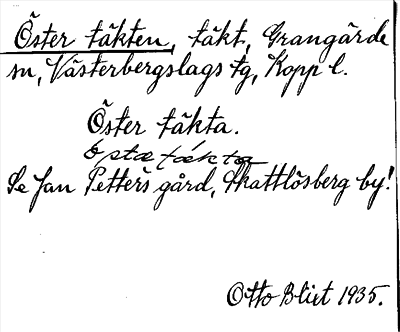 Öster täkten, täkt, Grangärde
sn, Västerbergslags tg, Kopp l.
Öster täkta.
östae täkta
Se Jan Petters gård, Skattlösberg by!
Otto Blixt 1935.